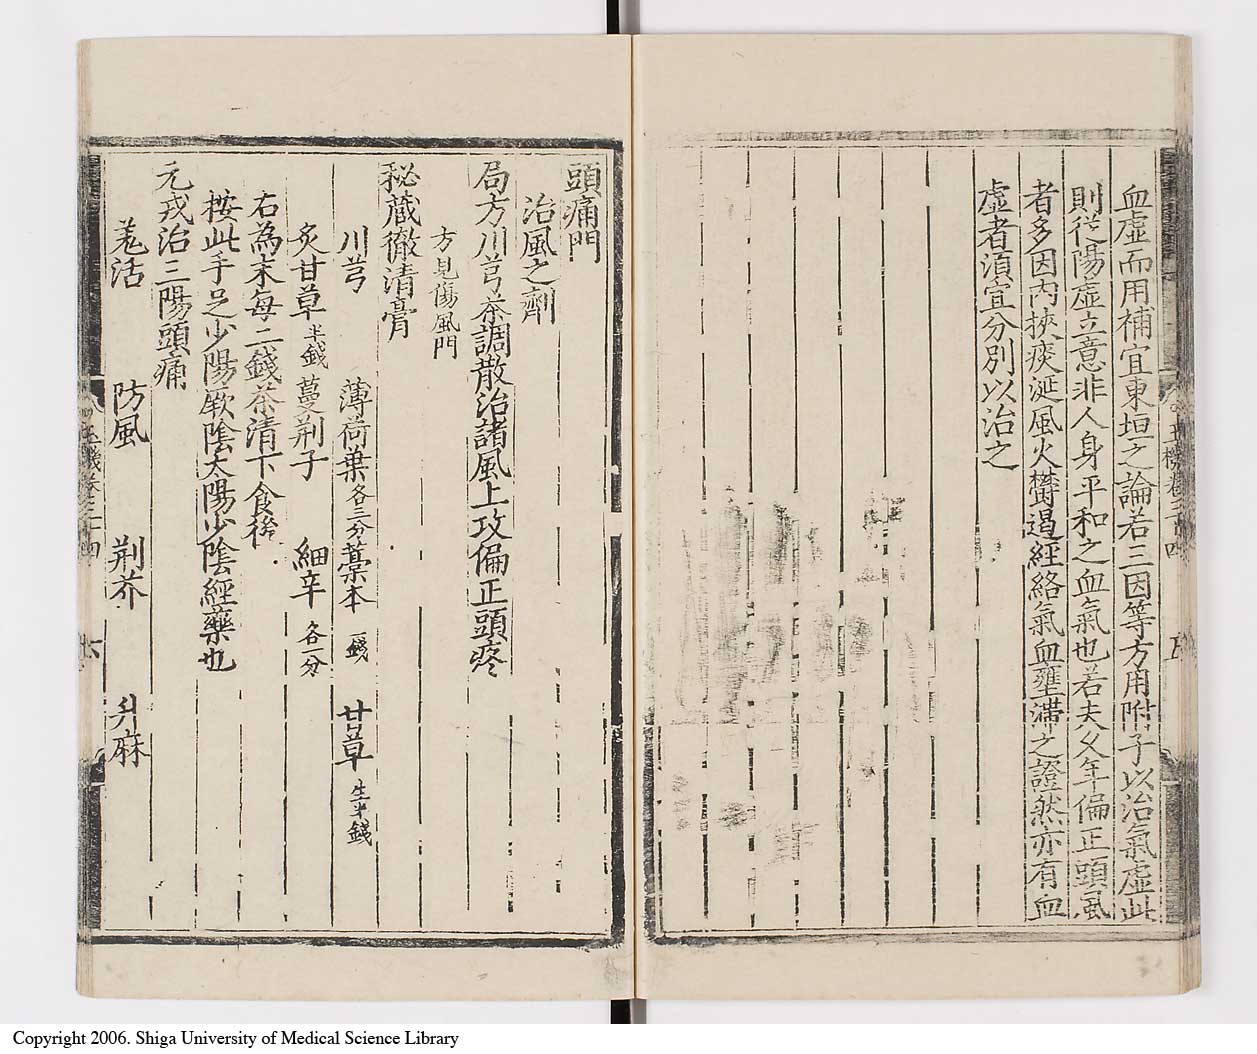 血虛而用補宜東垣之論若三因等方用附子以治氣虛此
則從陽虛立意非人身平和之血氣也若夫父年偏正頭風
者多因內挾痰涎風火鬱遏經絡氣血壅滯之證然亦有血
虛者須宜分別以治之
頭痛門
治風之劑
局方川芎茶調散治諸風上攻偏正頭疼
方見傷風門
秘藏徹清膏
川芎 薄荷葉各三分藁本一錢 甘草生半錢
炙甘草半錢 蔓荆子 細辛各一分
右為末每二錢茶清下食後
按此手足少陽厥陰太陽少陰經藥也
元戎治三陽頭痛
羌活 防風 荆芥 升麻
玉機卷之十四 六
Copyright 2006. Shiga University of Medical Science Library